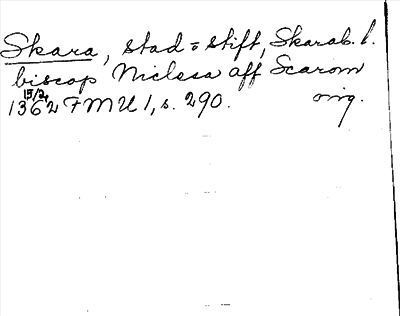 Skara, stad o stift, Skarab. l.
biscop Niclesa aff Scarom
15/2 1362 FMU 1, s. 290. orig.